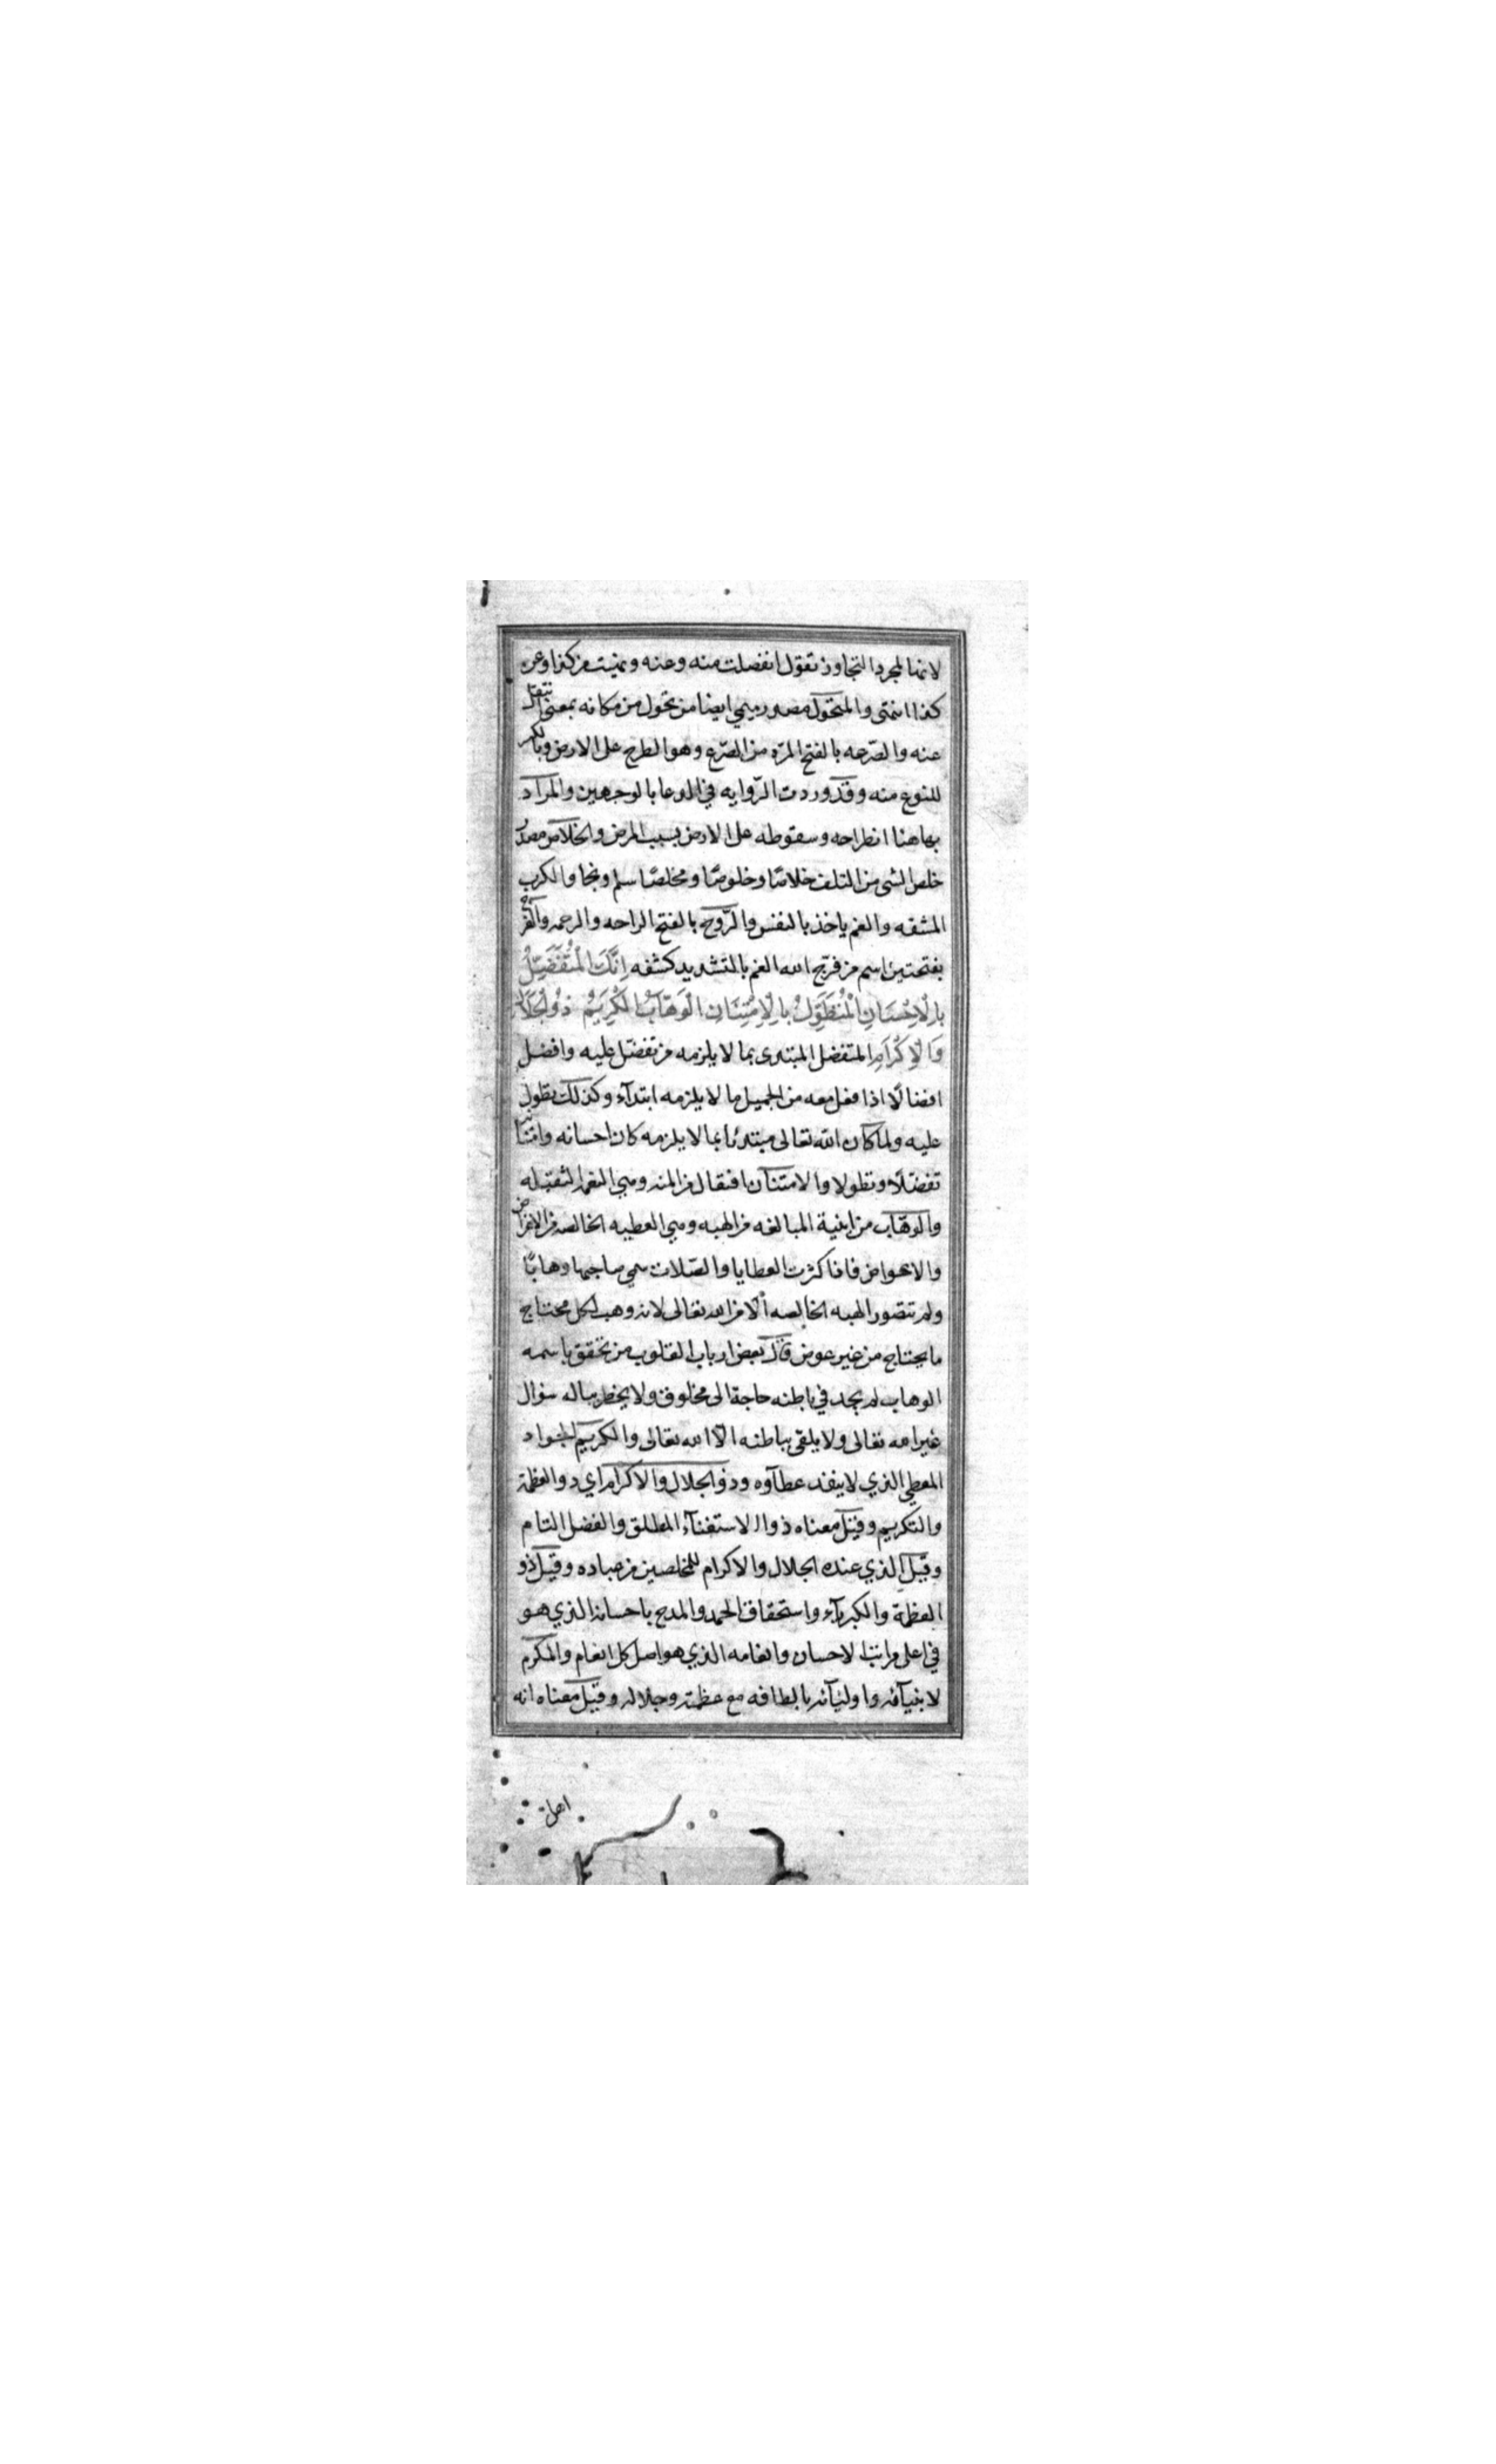 لانها لمجرد التجاوز تقول انفصلت منه وعنه ونهيت من كذا وعن
كذا انتهى والمتحول مصدر ميمي ايضا من تحول من مكانه بمعنى انتقل
عنه والصّرعه بالفتح المرّه من الصّرع وهو الطرح على الارض وبالكسر
للنوع منه وقد وردت الرّوايه في الدعا بالوجهين والمراد
بها هنا انطراحه وسقوطه على الارض بسبب المرض والخلاص مصدر
خلص الشى من التلف خلاصًا وخلوصًا ومخلصًا سلم ونجا والكرب
المشقه والغم ياخذ بالنفس والرّوح بالفتح الراحه والرحمه والفرج
بفتحتين اسم من فرّج الله الغم بالتشديد كشفه اِنَّكَ الْمُتَفَضِّلُ
بِالْاِحْسَانِ الْمُتَطَوِّلُ بِالْاِمْتِنَانِ الْوَهَّابُ الْكَرِيمُ ذُو الْجَلَالِ
وَالْاِكْرَامِ المتفضل المبتدى بما لا يلزمه من تفضّل عليه وافضل
افضالًا اذا فعل معه من الجميل ما لا يلزمه ابتدآء وكذلك تطول
عليه ولما كان الله تعالى مبتدئا بما لا يلزمه كان احسانه وامتنانه
تفضّلًا وتطولا والامتنان افتعال من المنه وهي النعمه الثقيله
والوهّاب من ابنية المبالغه من الهبه وهي العطيه الخالصه من الاغراض
والاعواض فاذا كثرت العطايا والصّلات سمي صاحبها وهابًا
ولم تتصور الهبه الخالصه الا من الله تعالى لانه وهب لكل محتاج
ما يحتاج من غير عوض قال بعض ارباب القلوب من تحقق باسمه
الوهاب لم يجد في باطنه حاجة الى مخلوق ولا يخطر بباله سؤال
غير الله تعالى ولا يلقى بباطنه الّا الله تعالى والكريم الجواد
المعطي الذي لا ينفد عطآوه وذو الجلال والاكرام اي ذو العظمة
والتكريم وقيل معناه ذو الاستغنآء المطلق والفضل التام
وقيل الذي عنده الجلال والاكرام للمخلصين من عباده وقيل ذو
العظمة والكبريآء واستحقاق الحمد والمدح باحسانه الذي هو
في اعلى مراتب الاحسان وانعامه الذي هو اصل كل انعام والمكرم
لانبيآئه واوليآئه بالطافه مع عظمته وجلاله وقيل معناه انه